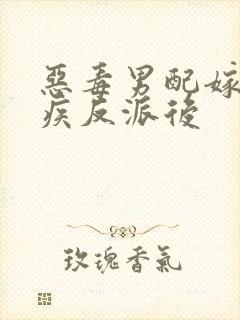 惡毒男配嫁
疾反派後
玫瑰香氣